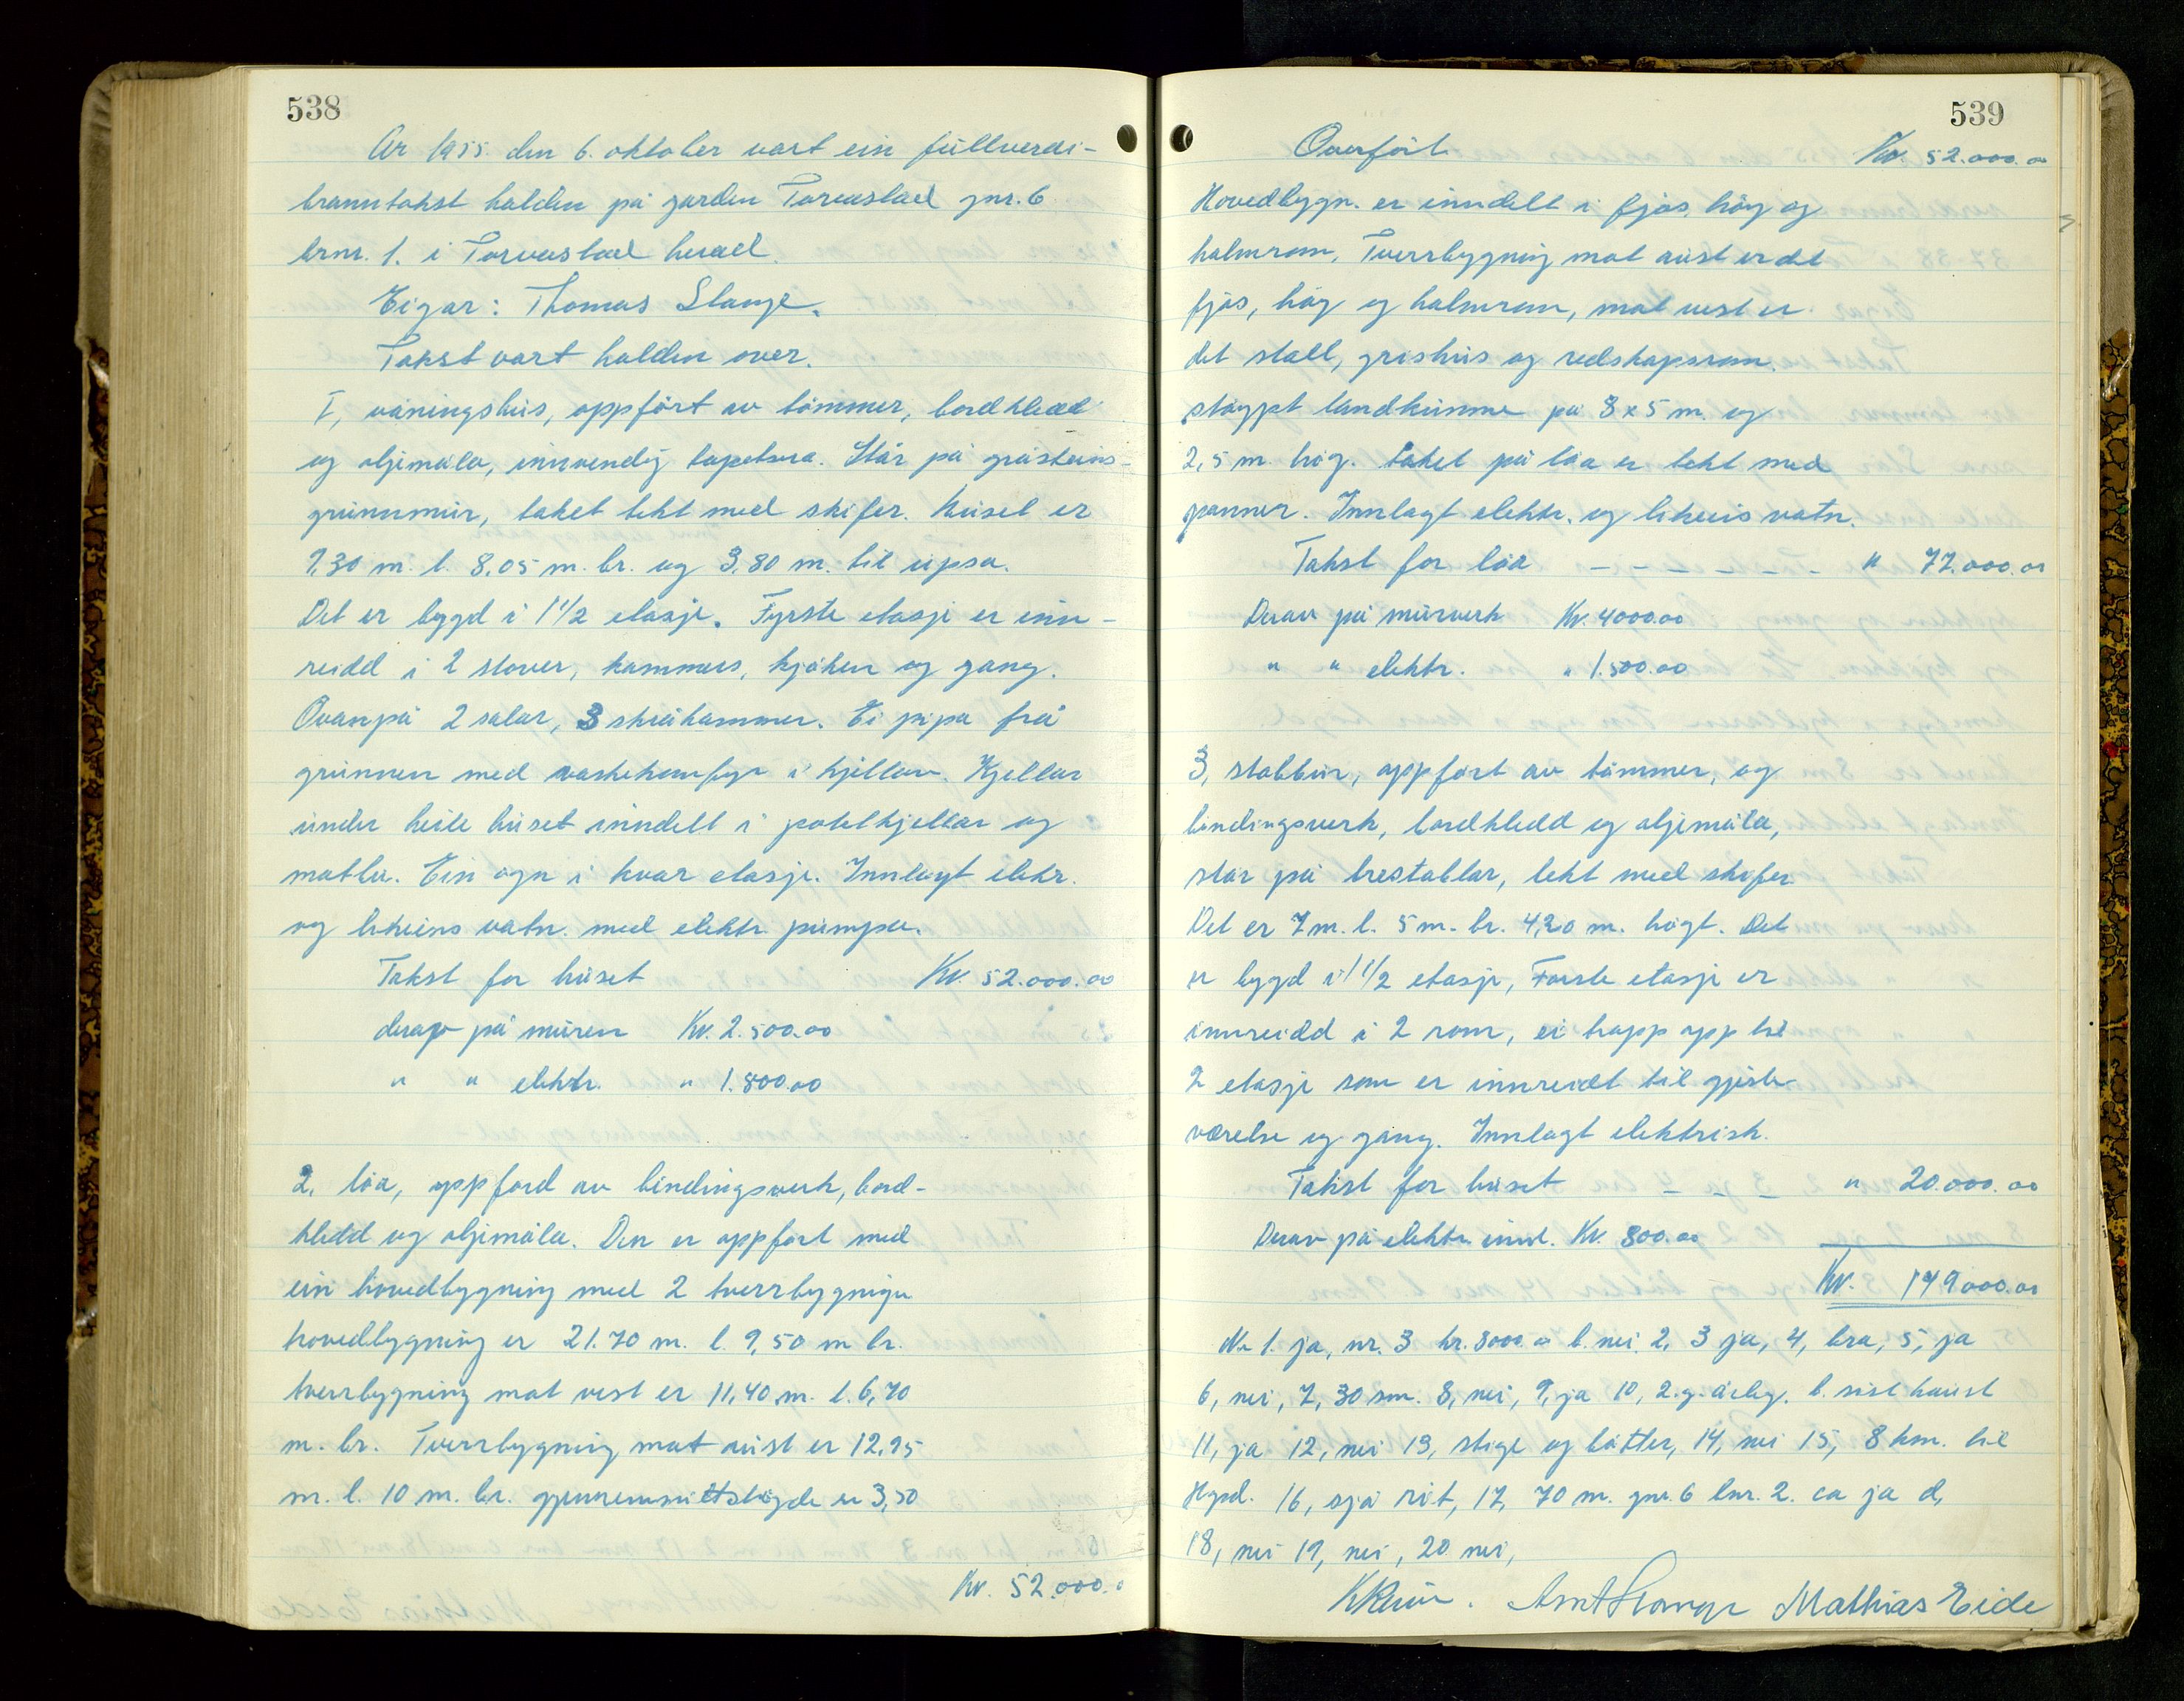 538
År 1955. den 6. oktober vart ein fullverdi-
branntakst halden på garden Torvastad gnr. 6
brnr. 1. i Torvastad herad.
Eigar: Thomas Stange.
Takst vart halden over.
I, våningshus, oppført av tømmer, bordkledd
og oljemåla, innvendig tapetsera. Står på gråsteins-
grunnmur, taket tekt med skifer. Huset er
9,30 m. l. 8,05 m. br. og 3,80 m. til upsa.
Det er bygd i 1 1/2 etasje. Fyrste etasje er inn-
reidd i 2 stover, kammers, kjøken og gang.
Ovanpå 2 salar, 3 skråkammer. Ei pipa frå
grunnen med vaskekomfyr i kjellar. Kjellar
under heile huset inndelt i potetkjellar og
matbu. Ein ogn i kvar etasje. Innlagt elektr.
og likeins vatn. med elektr. pumpa.
Takst for huset Kr. 52.000.00
derav på muren Kr. 2.500.00
" " elektr. " 1.800.00
2, löa, oppförd av bindingsverk, bord-
kledd og oljemåla. Den er oppført med
ein hovedbygning med 2 tverrbygnigu
hovedbygning er 21.70 m. l. 9,50 m br.
tverrbygning mot vest er 11,40 m. l. 6,70
m. br. Tverrbygning mot aust er 12,95
m. l. 10 m. br. gjennemsnittshögde er 3,50
Kr. 52.000.0
539
Overfört Kr. 52.000.00
Hovedbygn. er inndelt i fjøs, höy og
halmrom, Tverrbygning mot aust er det
fjøs, höy og halmrom, mot vest er
det stall, grishus og redskapsrom.
støypt landkumme på 8 x 5 m. og
2,5 m. høg. taket på löa er tekt med
panner. Innlagt elektr. og likeeis vatn.
Takst for löa - - - - - - - " 77.000.00
Derav på murverk Kr. 4000.00
" " elektr. " 1.500.00
3, stabbur, oppført av tømmer, og
bindingsverk, bordkledd og oljemåla,
står på trestablar, tekt med skifer.
Det er 7 m. l. 5 m. br. 4,20 m. høgt. Det
er bygd i 1 1/2 etasje, Første etasje er
innreidd i 2 rom, ei trapp opp til
2 etasje som er innreidt til gjeste-
værelse og gang. Innlagt elektrisk.
Takst for huset - - - " 20.000.00
Derav på elektr. innl. Kr. 800.00
Kr. 149000.00
Nr 1. ja, nr. 3 kr. 8000.00 b. nei. 2, 3 ja, 4, bra, 5, ja
6, nei, 7, 30 sm. 8, nei, 9, ja 10, 2. g. årleg. b. sist haust
11, ja 12, nei 13, stige og bøtter, 14, nei 15, 8 km. til
Hgsd. 16, sjå rit, 17, 70 m. gnr. 6 bnr. 2. ca ja d,
18, nei 19, nei, 20 nei,
Mathias Eide